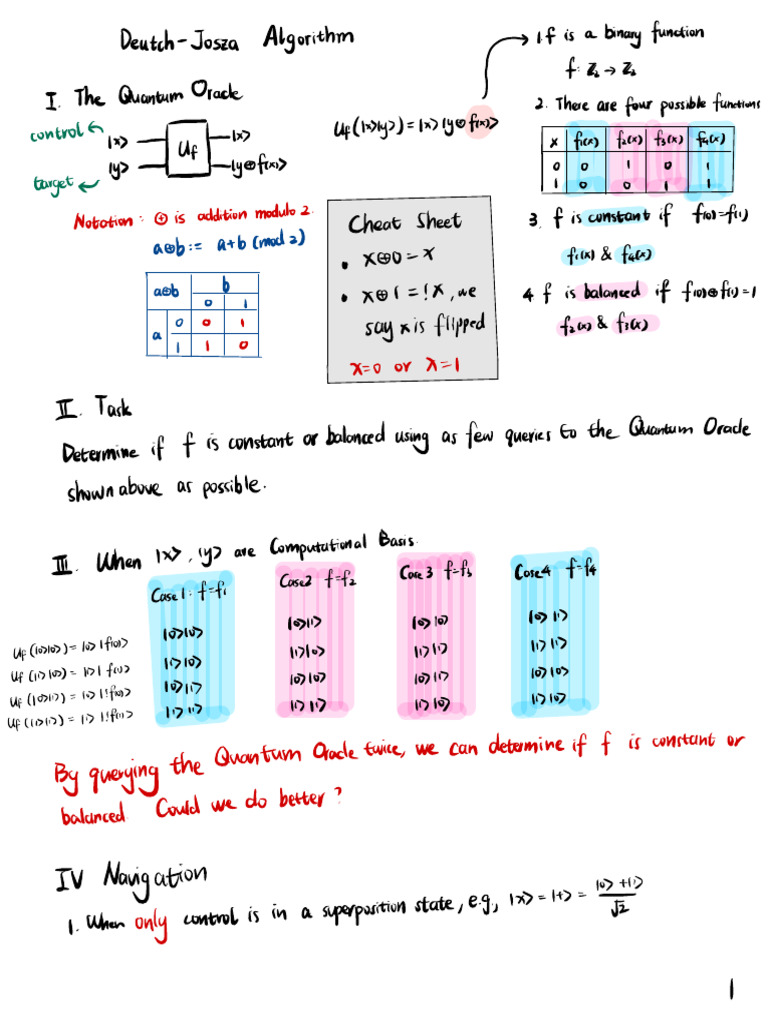 Deutch-Josza Algorithm
I. The Quantum Oracle
control
target
|x>
|y>
Uf
|x>
|y⊕f(x)>
Uf(|x>|y>) = |x> |y⊕f(x)>
1. f is a binary function
f: ℤ₂ → ℤ₂
2. There are four possible functions
x f₁(x) f₂(x) f₃(x) f₄(x)
0 0 1 0 1
1 0 0 1 1
3. f is constant if f(0)=f(1)
f₁(x) & f₄(x)
4 f is balanced if f(0)⊕f(1)=1
f₂(x) & f₃(x)
Notation: ⊕ is addition modulo 2.
a⊕b := a+b (mod 2)
a⊕b b
0 1
a 0 0 1
1 1 0
Cheat Sheet
• x⊕0=x
• x⊕1=!x, we
say x is flipped
x=0 or x=1
II. Task
Determine if f is constant or balanced using as few queries to the Quantum Oracle
shown above as possible.
III. When |x>, |y> are Computational Basis.
Uf(|0>|0>) = |0>|f(0)>
Uf(|1>|0>) = |1>| f(1)>
Uf(|0>|1>) = |0>|!f(0)>
Uf(|1>|1>) = |1>|!f(1)>
Case 1: f=f₁
|0>|0>
|1>|0>
|0>|1>
|1>|1>
Case2 f=f₂
|0>|1>
|1>|0>
|0>|0>
|1>|1>
Case 3 f=f₃
|0>|0>
|1>|1>
|0>|1>
|1>|0>
Case4 f=f₄
|0>|1>
|1>|1>
|0>|0>
|1>|0>
By querying the Quantum Oracle twice, we can determine if f is constant or
balanced. Could we do better?
IV Navigation
1. When only control is in a superposition state, e.g., |x> = |+> = (|0>+|1>)/√2
1